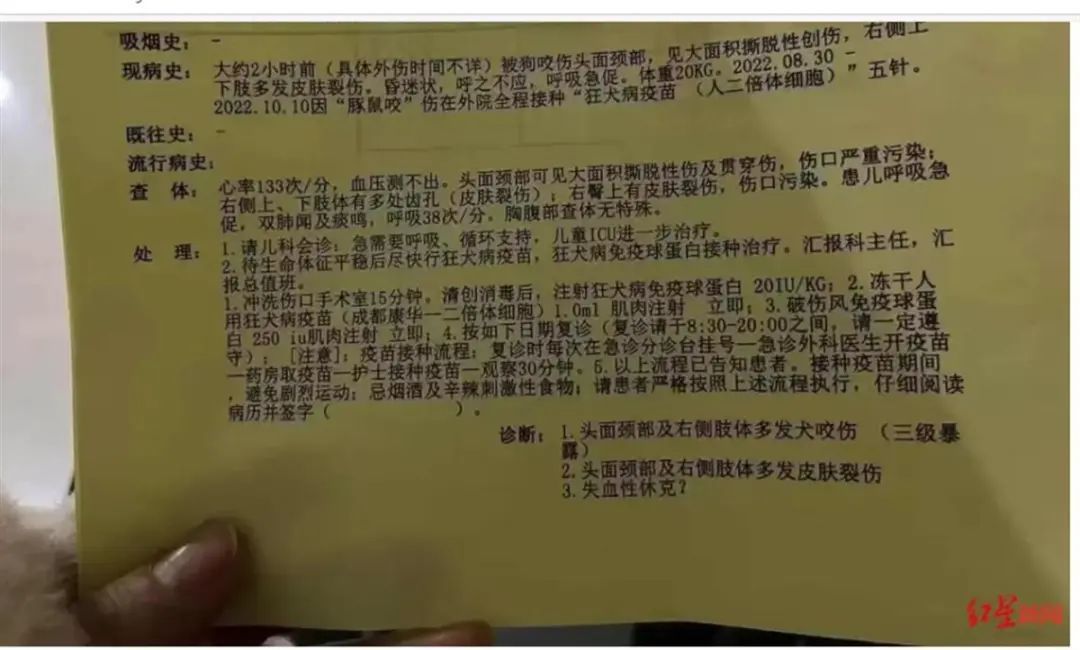 吸烟史： -
现病史： 大约2小时前（具体外伤时间不详）被狗咬伤头面颈部，见大面积撕脱性创伤，右侧上
下肢多发皮肤裂伤。昏迷状，呼之不应，呼吸急促。体重20KG。2022.08.30 -
2022.10.10因“豚鼠咬”伤在外院全程接种“狂犬病疫苗 （人二倍体细胞）”五针。
既往史： -
流行病史：
查 体： 心率133次/分，血压测不出。头面颈部可见大面积撕脱性伤及贯穿伤，伤口严重污染；
右侧上、下肢体有多处齿孔（皮肤裂伤）；右臀上有皮肤裂伤，伤口污染。患儿呼吸急
促，双肺闻及痰鸣，呼吸38次/分，胸腹部查体无特殊。
处 理： 1.请儿科会诊：急需要呼吸、循环支持，儿童ICU进一步治疗。
2.待生命体征平稳后尽快行狂犬病疫苗，狂犬病免疫球蛋白接种治疗。汇报科主任，汇
报总值班。
1.冲洗伤口手术室15分钟。清创消毒后，注射狂犬病免疫球蛋白 20IU/KG；2.冻干人
用狂犬病疫苗（成都康华—二倍体细胞）1.0ml 肌肉注射 立即；3.破伤风免疫球蛋
白 250 iu肌肉注射 立即；4.按如下日期复诊（复诊请于8:30-20:00之间，请一定遵
守）；[注意]：疫苗接种流程：复诊时每次在急诊分诊台挂号—急诊外科医生开疫苗
—药房取疫苗—护士接种疫苗—观察30分钟。5.以上流程已告知患者。接种疫苗期间
，避免剧烈运动；忌烟酒及辛辣刺激性食物；请患者严格按照上述流程执行，仔细阅读
病历并签字（ ）。
诊断： 1.头面颈部及右侧肢体多发犬咬伤 （三级暴
露）
2.头面颈部及右侧肢体多发皮肤裂伤
3.失血性休克？
红星新闻